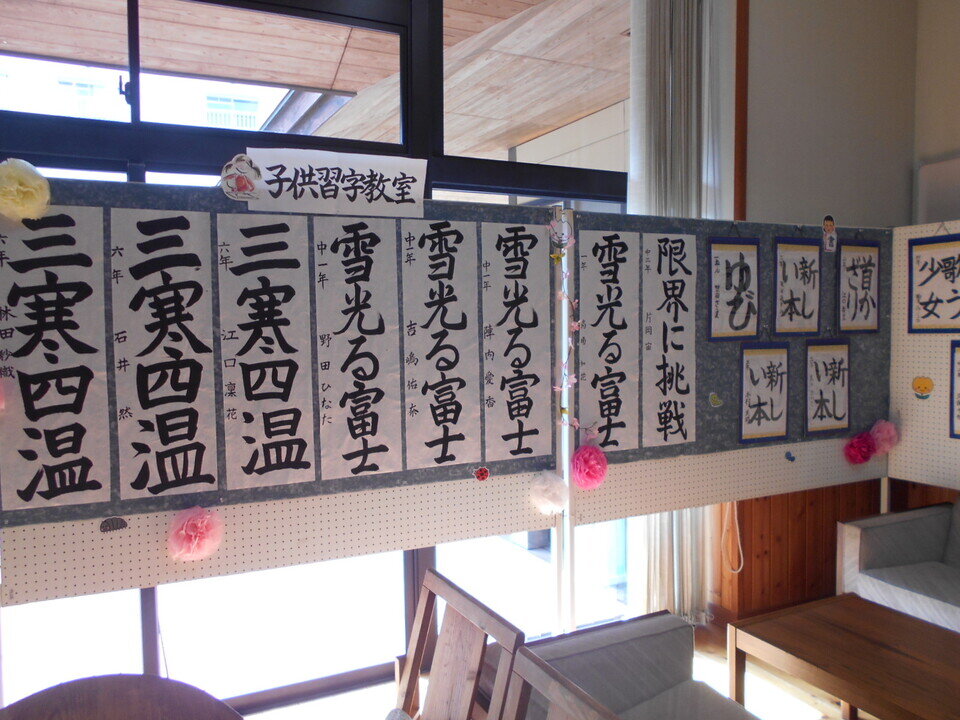 子供習字教室
三寒四温
六年
三寒四温
六年 石井 然
三寒四温
六年 江口凜花
雪光る富士
中一年 野田ひなた
雪光る富士
中一年 吉嶋佑奈
雪光る富士
中一年 陣内愛香
雪光る富士
一年
限界に挑戦
中二年 片岡宙
ゆび
新し
い本
首か
ざり
新し
い本
新し
い本
歌う
少女